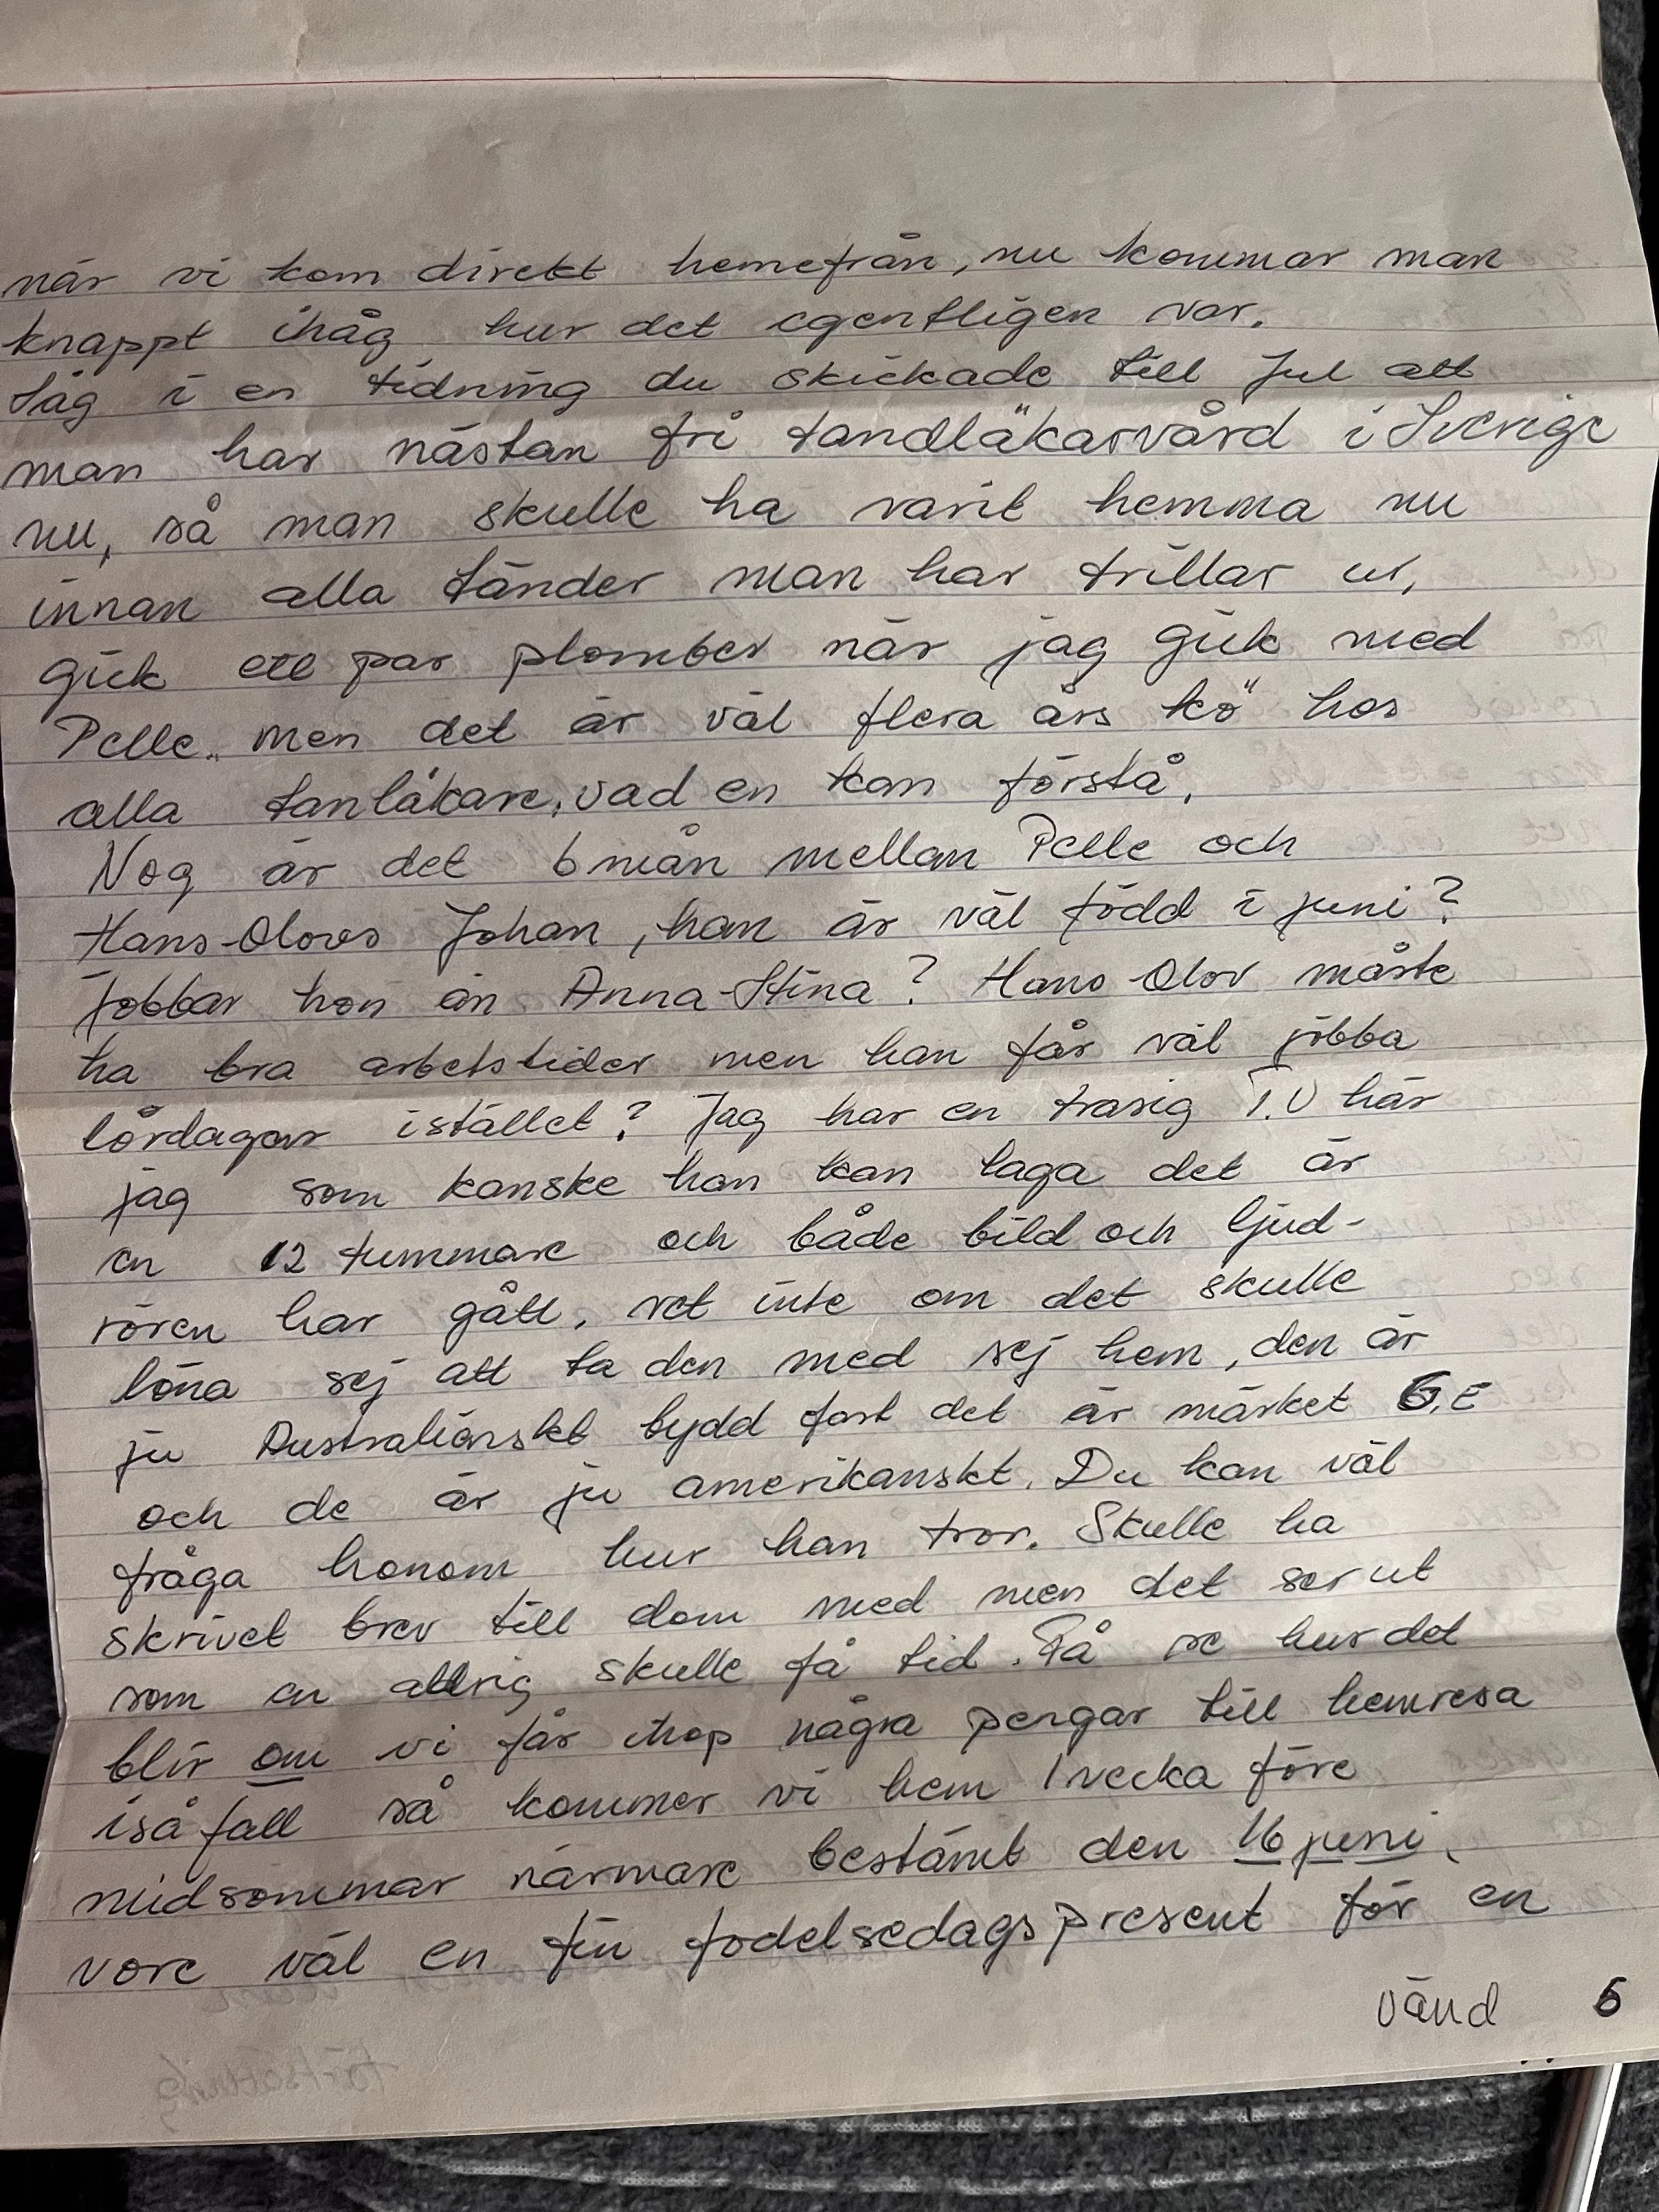 när vi kom direkt hemefrån, nu kommar man
knappt ihåg hur det egentligen var.
Såg i en tidning du skickade till Jul att
man har nästan fri tandläkarvård i Sverige
nu, så man skulle ha varit hemma nu
innan alla tänder man har trillar ur,
gick ett par plomber när jag gick med
Pelle.. men det är väl flera års kö hos
alla tanläkare, vad en kan förstå.
Nog är det 6 mån mellan Pelle och
Hans-Olovs Johan, han är väl född i juni?
Jobbar hon än Anna-Stina? Hans-Olov måste
ha bra arbetstider men han får väl jobba
lördagar istället? Jag har en trasig T.V här
jag som kanske han kan laga det är
en 12 tummare och både bild och ljud-
rören har gått. vet inte om det skulle
löna sej att ta den med sej hem, den är
ju Australiänskt bydd fast det är märket G.E
och de är ju amerikanskt. Du kan väl
fråga honom hur han tror. Skulle ha
skrivet brev till dom med men det ser ut
som en alldrig skulle få tid. Få se hur det
blir om vi får ihop några pengar till hemresa
iså fall så kommer vi hem 1 vecka före
midsommar närmare bestämt den 16 juni.
vore väl en fin fodelsedagspresent för en
vänd 6